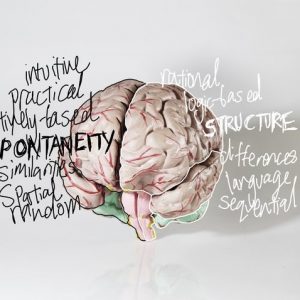 intuitive
practical
tively-based
PONTANEITY
similarities
spatial
random
rational
logic-based
STRUCTURE
differences
language
sequential